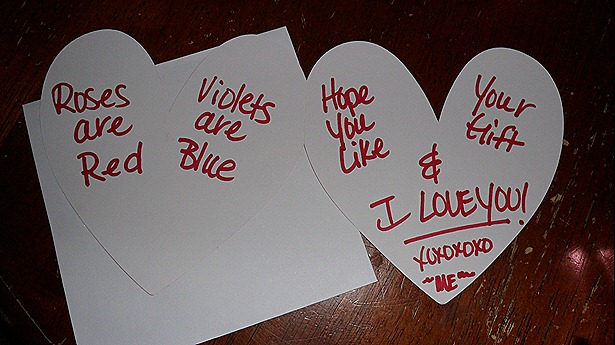 Roses
are
Red
Violets
are
Blue
Hope
you
Like
Your
Gift
&
I LOVE YOU!
XOXOXOXO
~ME~